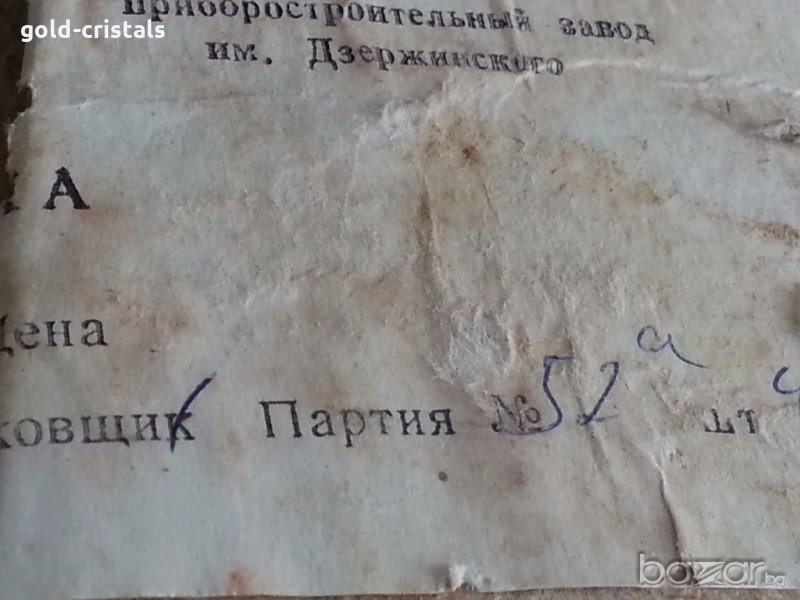 gold-cristals
приборостроительный завод
им. Дзержинского
А
Цена
ковщик Партия № 52а шт
bazar.bg